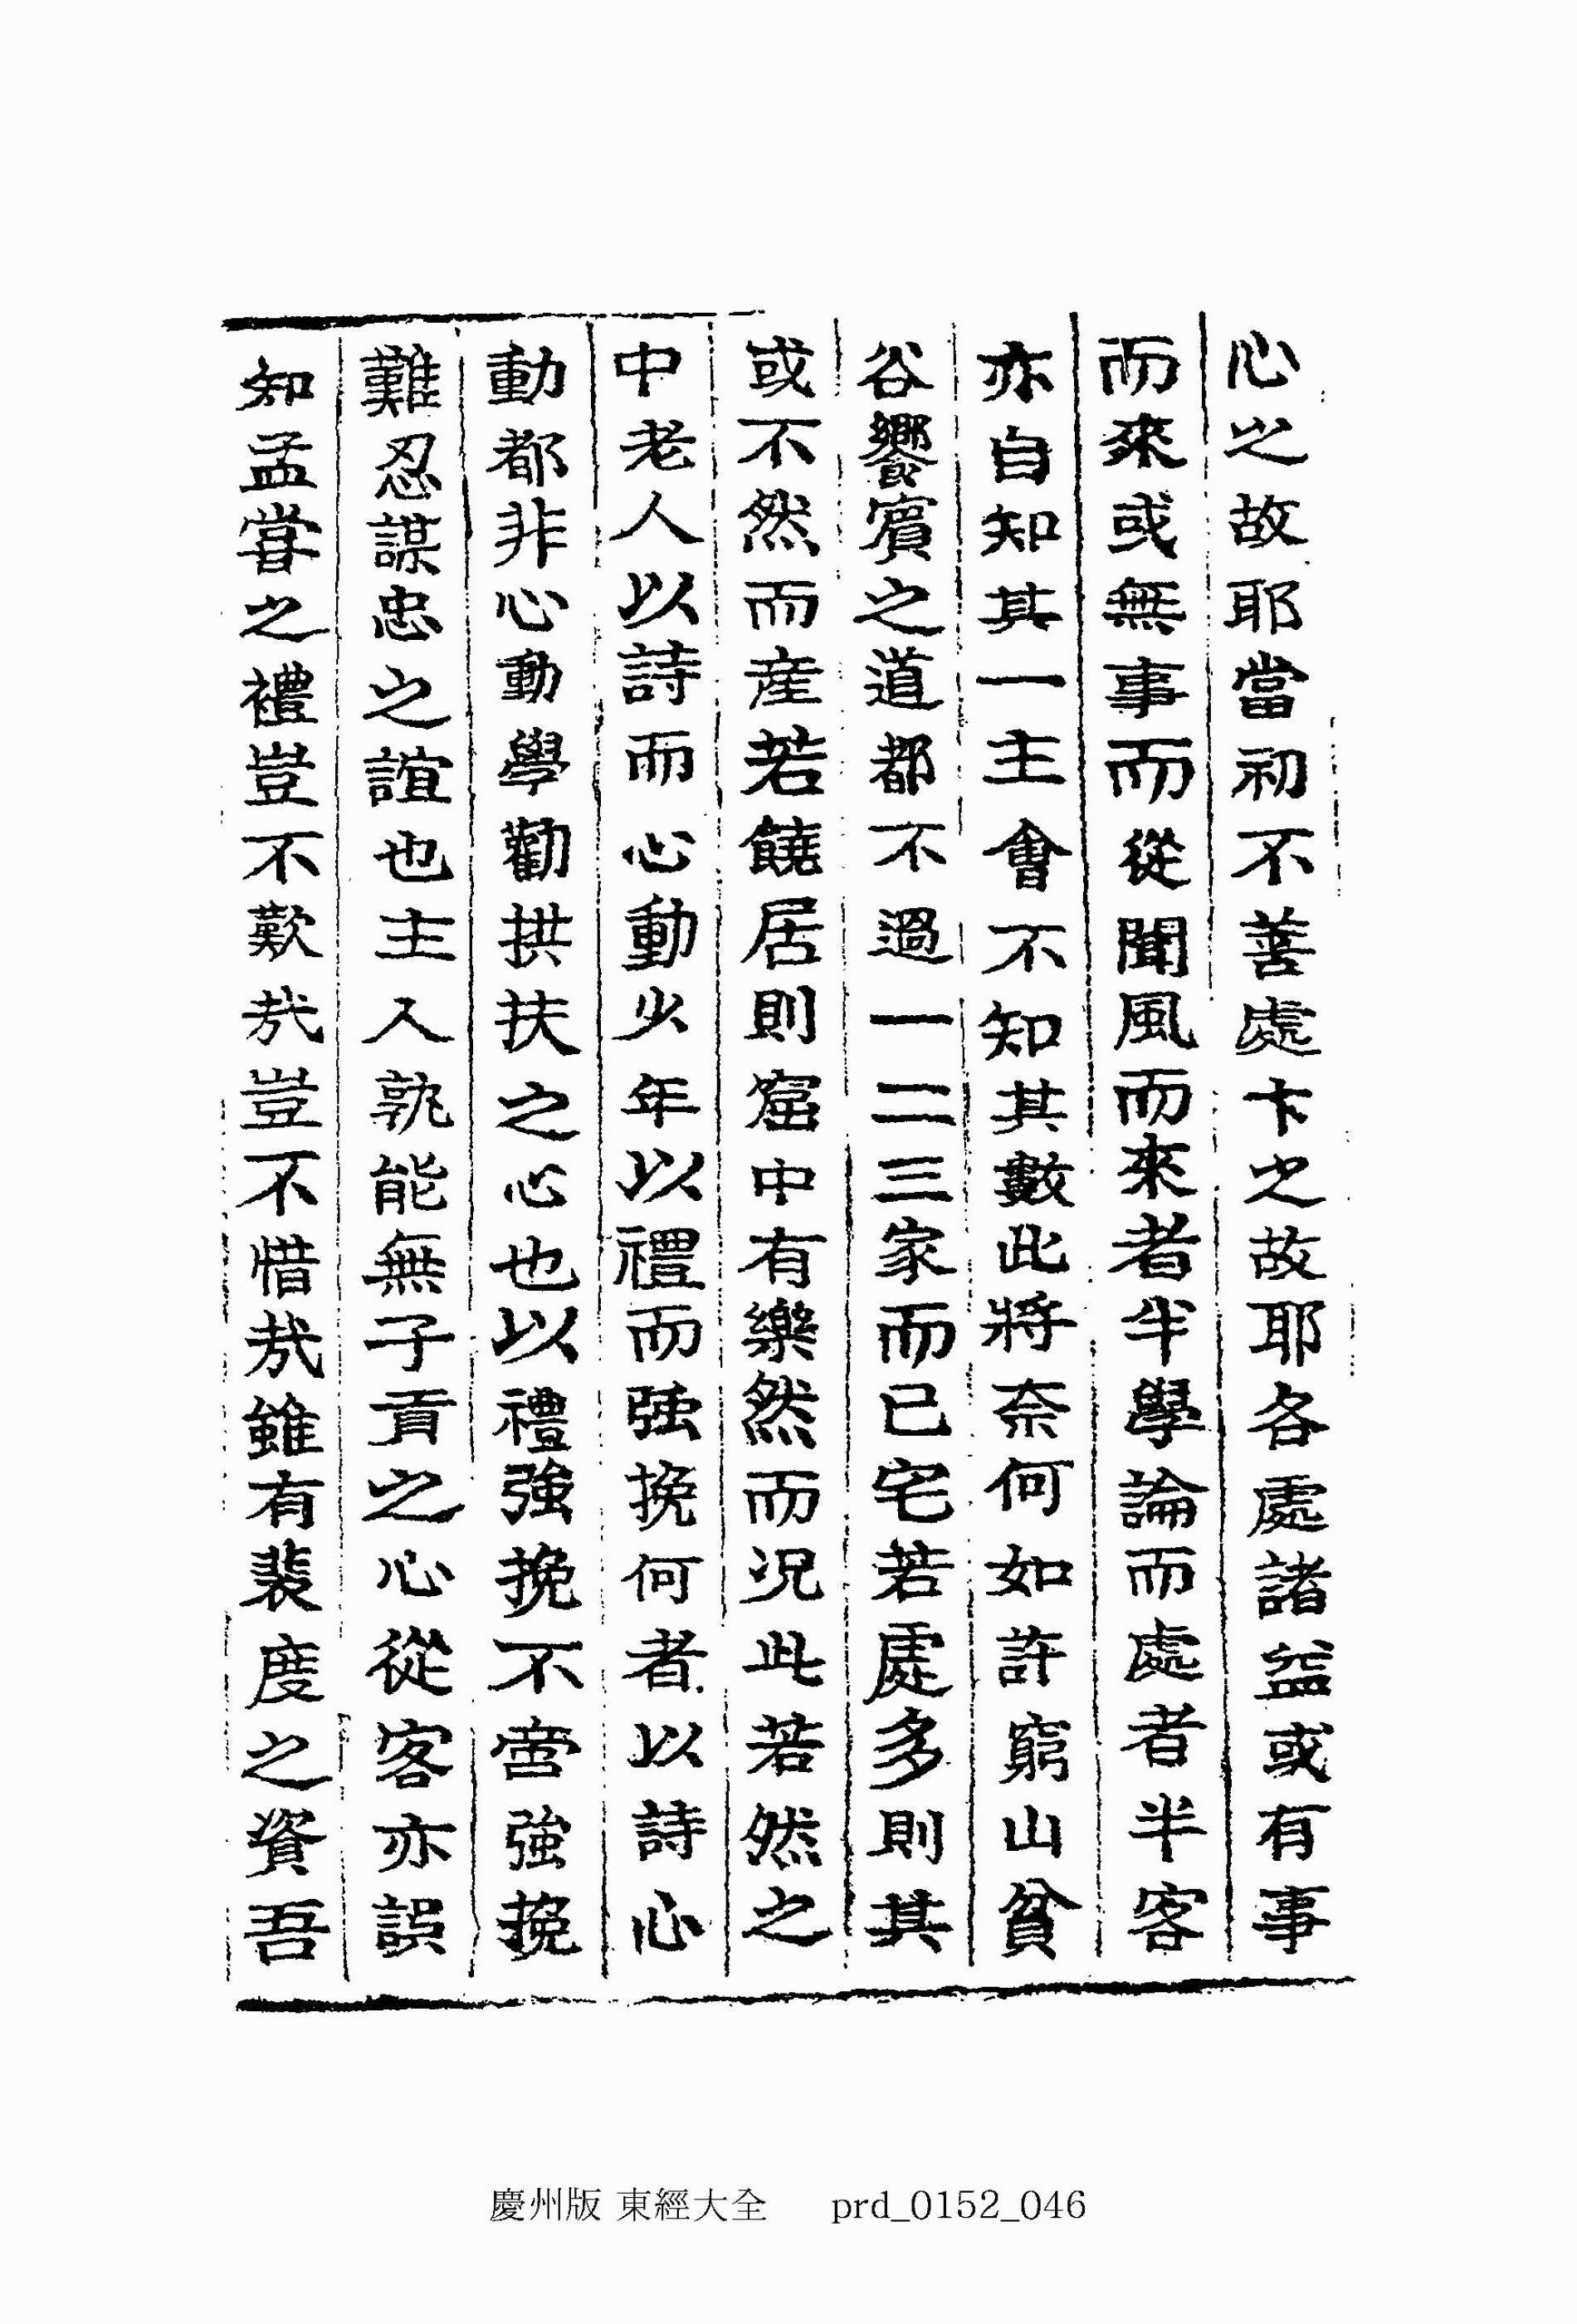 心之故耶當初不善處卞之故耶各處諸益或有事
而來或無事而從聞風而來者半學論而處者半客
亦自知其一主會不知其數此將奈何如許窮山貧
谷饗賓之道都不過一二三家而已宅若處多則其
或不然而産若饒居則窟中有樂然而况此若然之
中老人以詩而心動少年以禮而强挽何者以詩心
動都非心動學勸拱扶之心也以禮強挽不啻強挽
難忍謀忠之誼也主人孰能無子貢之心從客亦誤
知孟甞之禮豈不歎哉豈不惜哉雖有裴度之資吾
慶州版 東經大全 prd_0152_046